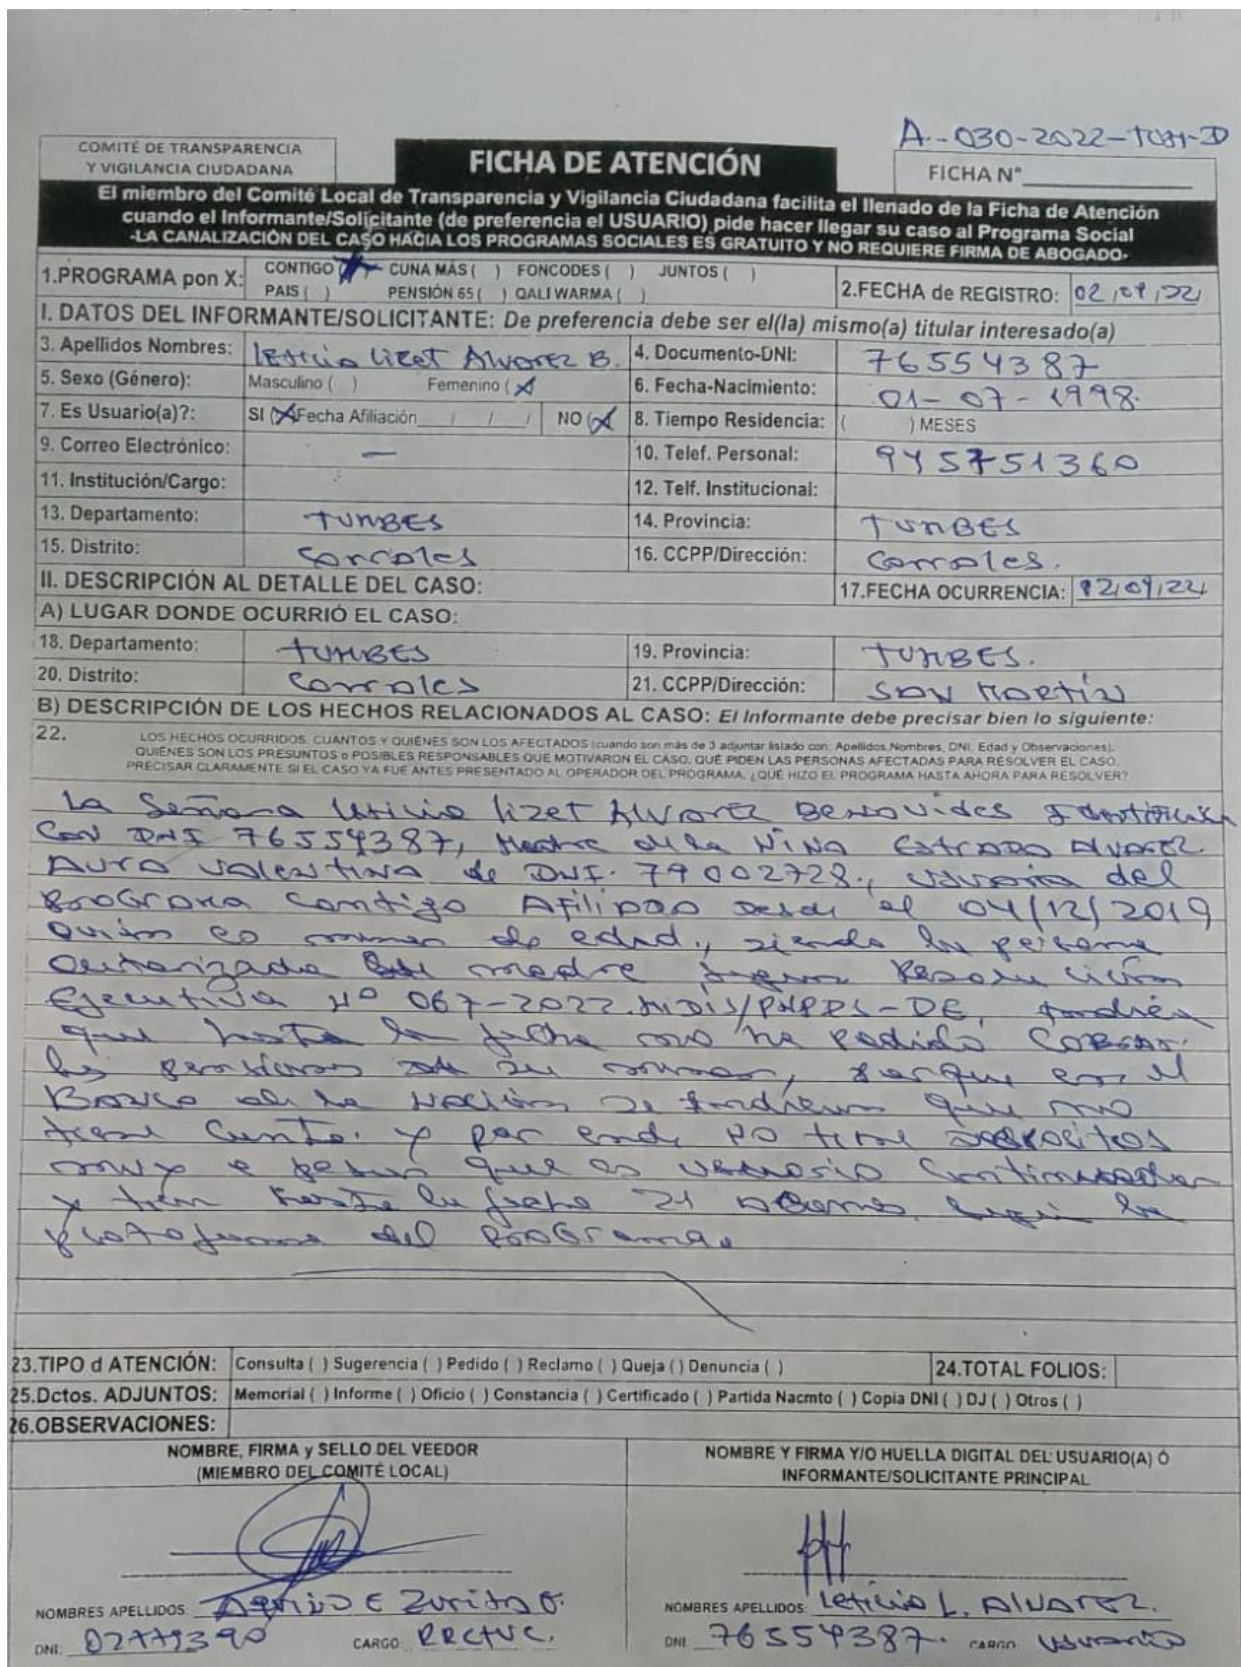 A.-030-2022-TUM-D
COMITÉ DE TRANSPARENCIA
Y VIGILANCIA CIUDADANA
FICHA DE ATENCIÓN
FICHA N°
El miembro del Comité Local de Transparencia y Vigilancia Ciudadana facilita el llenado de la Ficha de Atención
cuando el Informante/Solicitante (de preferencia el USUARIO) pide hacer llegar su caso al Programa Social
-LA CANALIZACIÓN DEL CASO HACIA LOS PROGRAMAS SOCIALES ES GRATUITO Y NO REQUIERE FIRMA DE ABOGADO-
1.PROGRAMA pon X: CONTIGO (X) CUNA MÁS ( ) FONCODES ( ) JUNTOS ( )
PAIS ( ) PENSIÓN 65 ( ) QALI WARMA ( )
2.FECHA de REGISTRO: 02/09/22
I. DATOS DEL INFORMANTE/SOLICITANTE: De preferencia debe ser el(la) mismo(a) titular interesado(a)
3. Apellidos Nombres: Leticia Lizet Alvarez B. 4. Documento-DNI: 76554387
5. Sexo (Género): Masculino ( ) Femenino (X) 6. Fecha-Nacimiento: 01-07-1998.
7. Es Usuario(a)?: SI (X) Fecha Afiliación / / / NO (X) 8. Tiempo Residencia: ( ) MESES
9. Correo Electrónico: — 10. Telef. Personal: 945751360
11. Institución/Cargo: 12. Telf. Institucional:
13. Departamento: TUMBES 14. Provincia: TUMBES
15. Distrito: Corrales 16. CCPP/Dirección: Corrales.
II. DESCRIPCIÓN AL DETALLE DEL CASO: 17.FECHA OCURRENCIA: 02/09/22
A) LUGAR DONDE OCURRIÓ EL CASO:
18. Departamento: TUMBES 19. Provincia: TUMBES.
20. Distrito: Corrales 21. CCPP/Dirección: SAN MARTÍN
B) DESCRIPCIÓN DE LOS HECHOS RELACIONADOS AL CASO: El Informante debe precisar bien lo siguiente:
22. LOS HECHOS OCURRIDOS. CUANTOS Y QUIÉNES SON LOS AFECTADOS (cuando son más de 3 adjuntar listado con: Apellidos,Nombres, DNI, Edad y Observaciones).
QUIÉNES SON LOS PRESUNTOS o POSIBLES RESPONSABLES QUE MOTIVARON EL CASO. QUÉ PIDEN LAS PERSONAS AFECTADAS PARA RESOLVER EL CASO.
PRECISAR CLARAMENTE SI EL CASO YA FUE ANTES PRESENTADO AL OPERADOR DEL PROGRAMA, ¿QUÉ HIZO EL PROGRAMA HASTA AHORA PARA RESOLVER?
La Señora Leticia Lizet Alvarez Benavides
Con DNI 76554387, Madre de la Niña Estrada Alvarez
Aura Valentina de DNI. 79002728., usuaria del
Programa Contigo Afiliada desde el 04/12/2019
quien es menor de edad., siendo la persona
autorizada madre según Resolución
Ejecutiva N° 067-2022.MIDIS/PNPDS-DE,
que hasta la fecha no ha podido Cobrar.
las pensiones de su menor, porque en el
Banco de la Nación le indican que no
tiene Cuenta. y por ende no tiene depositos
a pesar que es usuaria
y tiene hasta la fecha 21 Abonos, según la
plataforma del Programa.
23.TIPO d ATENCIÓN: Consulta ( ) Sugerencia ( ) Pedido ( ) Reclamo ( ) Queja ( ) Denuncia ( ) 24.TOTAL FOLIOS:
25.Dctos. ADJUNTOS: Memorial ( ) Informe ( ) Oficio ( ) Constancia ( ) Certificado ( ) Partida Nacmto ( ) Copia DNI ( ) DJ ( ) Otros ( )
26.OBSERVACIONES:
NOMBRE, FIRMA y SELLO DEL VEEDOR
(MIEMBRO DEL COMITÉ LOCAL)
NOMBRE Y FIRMA Y/O HUELLA DIGITAL DEL USUARIO(A) Ó
INFORMANTE/SOLICITANTE PRINCIPAL
NOMBRES APELLIDOS: E Zurita O.
DNI: 02779390 CARGO: RRCTVC.
NOMBRES APELLIDOS: Leticia L. Alvarez.
DNI: 76554387. CARGO: Usuaria